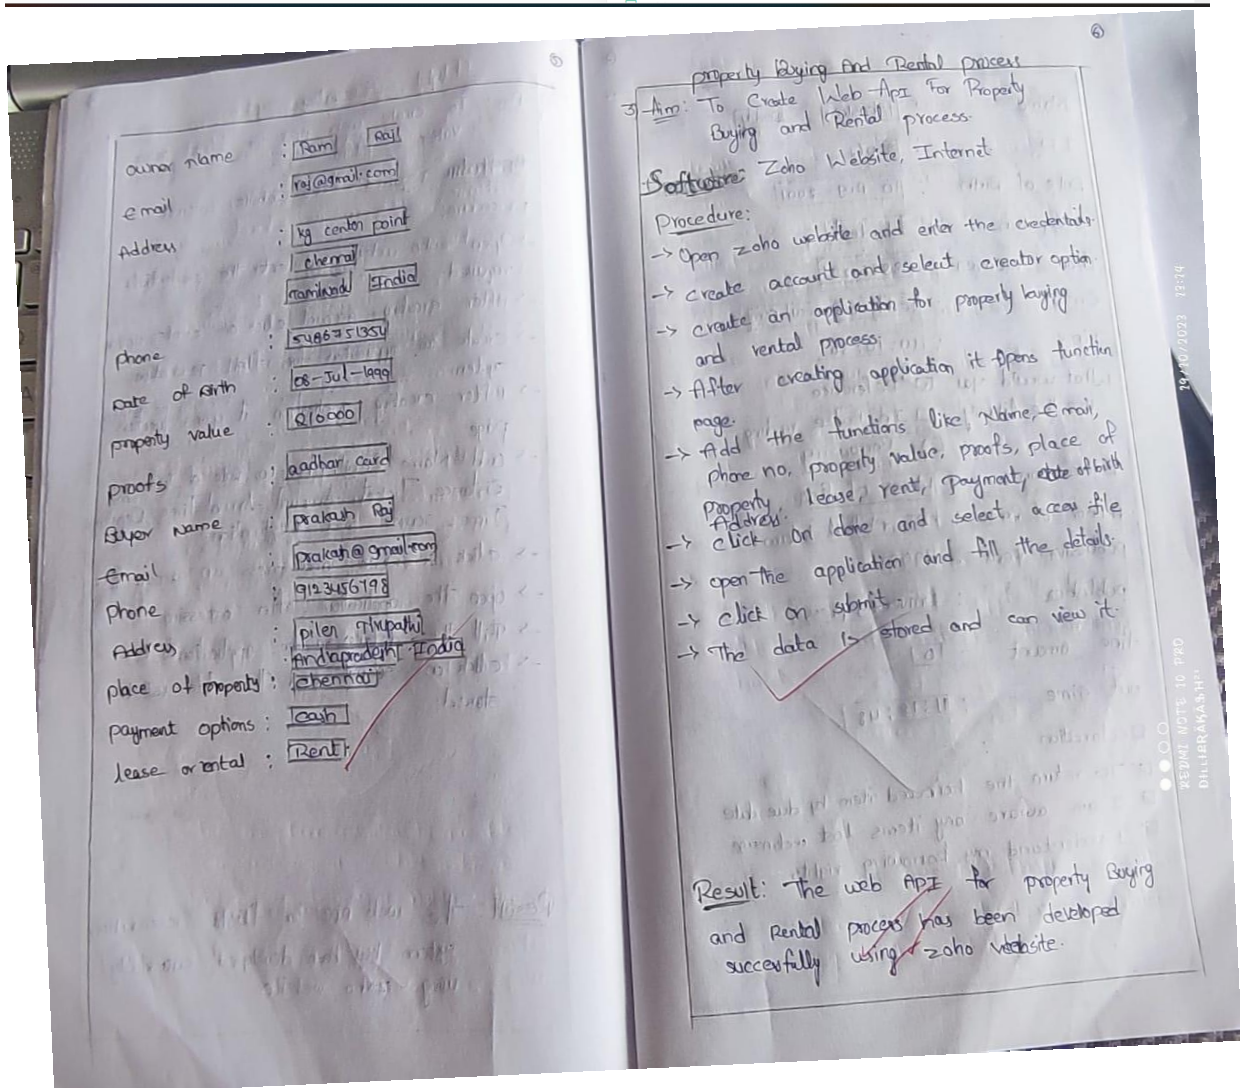 5
owner name : Ram Raj
email : raj@gmail.com
Address : kg center point
chennai
Tamilnadu India
phone : 5486751354
Date of Birth : 08-Jul-1999
property value : 810000
proofs : aadhar card
Buyer Name : prakash Raj
Email : prakash@gmail.com
Phone : 9123456798
Address : piler, Tirupathi
Andrapradesh India
place of property : Chennai
payment options : Cash
lease or rental : Rent
6
property Buying And Rental process
3) Aim: To Create Web-Api For Property
Buying and Rental process.
Software: Zoho Website, Internet
Procedure:
-> Open zoho website and enter the credentials.
-> create account and select creator option.
-> create an application for property buying
and rental process.
-> After creating application it opens function
page.
-> Add the functions like Name, Email,
phone no, property value, proofs, place of
property, lease, rent, payment, date of birth
Address.
-> click on done and select access file
-> open the application and fill the details.
-> click on submit.
-> The data is stored and can view it.
Result: The web API for property Buying
and Rental process has been developed
successfully using zoho website.
REDMI NOTE 10 PRO
DILLIPRAKASH
29/10/2023 23:24